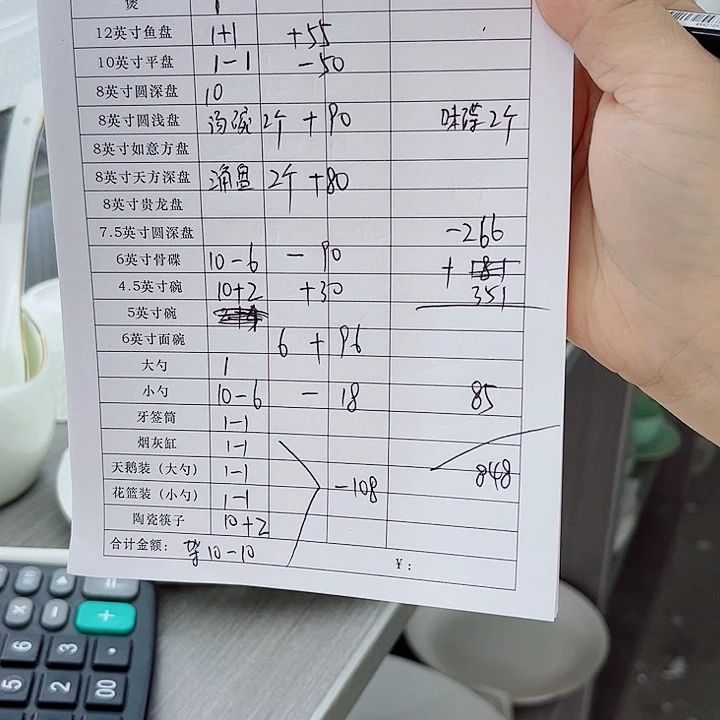 煲 1
12英寸鱼盘 1+1 +55
10英寸平盘 1-1 -50
8英寸圆深盘 10
8英寸圆浅盘 汤碗 2个 +90 味碟 2个
8英寸如意方盘
8英寸天方深盘 2个 +80
8英寸贵龙盘
7.5英寸圆深盘 -266
6英寸骨碟 10-6 -90 +
4.5英寸碗 10+2 +30 351
5英寸碗
6英寸面碗 6 +96
大勺 1
小勺 10-6 -18 85
牙签筒 1-1
烟灰缸 1-1
天鹅装（大勺） 1-1 848
花篮装（小勺） 1-1 -108
陶瓷筷子 10+2
合计金额： 10-10 ¥：
+
× - 3 ·
5 6 2 00